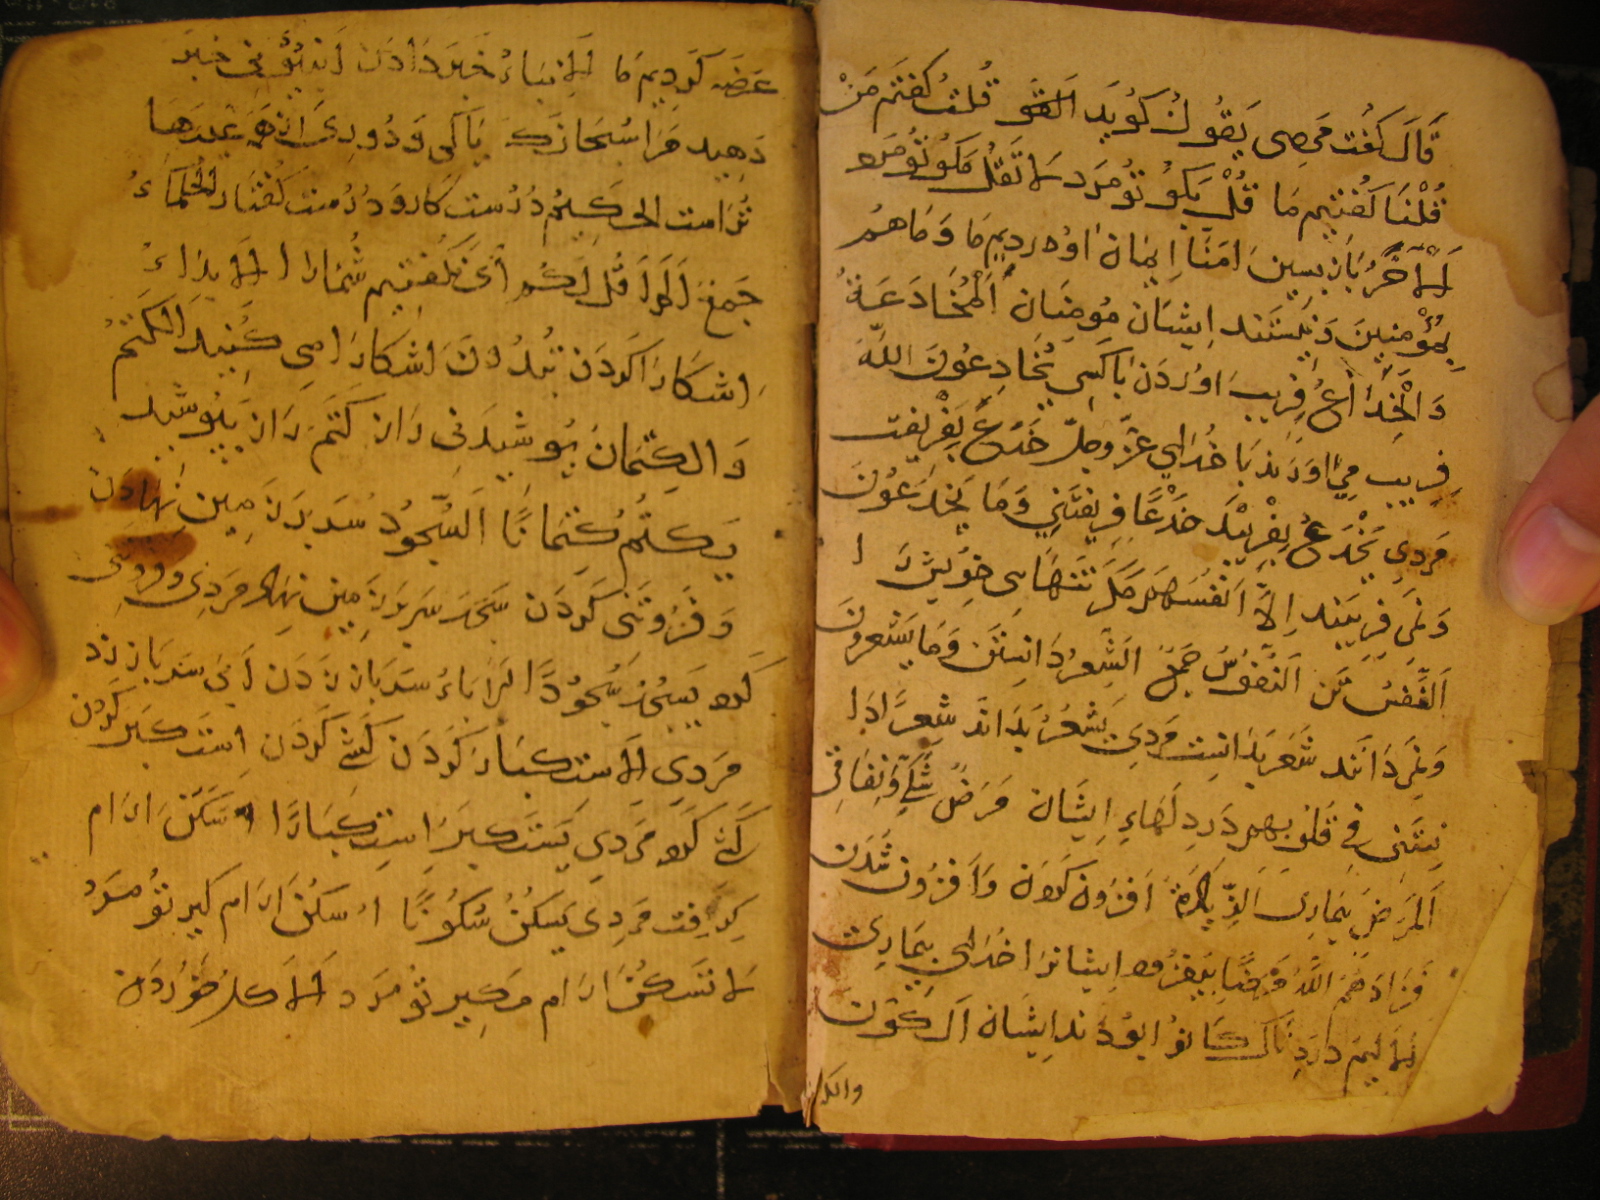 قَالَ كَفُت مَی یَقُولُ كَوُیَد اَلقَو قُلتُ كفتَم مَنْ
قُلْنَا كَفُتیِم مَا قُلْ بِكَوُ تُو مَرَد لَا تَقُلْ مَكَو تُو مَرد
اَلْاَخَرُ بَازِبسِین اٰمَنَّا اِیمَان اوُردیم مَا وَمَا هُم
بِمُؤْمِنِینَ وَنیستَند اِیشَان مُومِنَان اَلْمُخَادَعَةُ
وَالْخِدَاعُ فِرِیب اوُردَن بَا كَسِی یُخَادِعُونَ اللّٰهَ
فِرِیب می اوُرَند بَا خُدَای عَزَّ وجلّ خَدَعَ بِفْریفت
مَردِی یَخْدَعُ بِفْرِیبَد خَدْعًا فِرِیفتَنِی وَمَا یَخْدَعُونَ
وَنَمی فِرِیبَند اِلَّا اَنْفُسَهُم مَكَر تَنهَای خوِیش رَا
اَلنَّفسُ تَن اَلنُّفُوسُ جَمعُ اَلشِّعرُ دَانِستَن وَمَا یَشعُرُونَ
وَنَمی دَانَند شَعَرَ بِدَانِست مَردِی یَشْعُرُ بِدَانَد شِعرًا دَا
نِستَنِی فِی قُلُوبِهِم دَردِلهَاءِ اِیشَان مَرَضٌ شَكّی وَنِفَاقی
اَلمَرَضُ بِیمَارِی اَلزِّیَادَةُ اَفزُون كَردَن وَاَفزُون شُدَن
فَزَادَهُمُ اللّٰهُ مَرَضًا بیفزُود ایشَانرَا خُدَای بِیمَارِی
اَلِیم دَردنَاك كَانُوا بوُدَند اِیشَان اَلكَوُن
والكذ
عَرضَه كَردِیم مَا اَلاِنبَاءُ خَبَر دَادَن اَنبِئُونِی خبَر
دَهِید مَرا سُبحَانَكَ پَاكی وَدُورِی
تُرَاست الحَكِیمُ دُرُست كَار وَدُرُست كفتَار الحُكَمَاءُ
جَمع اَلَم اَقُل لَكُم اَی نكفتِیم شُمَارَا اَلاِبدَاءُ
اشكَارَا كَردَن تُبدُونَ اشكَارَا مِی كُنِید اَلكَتمُ
وَالكِتمَانُ پُوشِیدَنی رَاز كَتَمَ رَاز بِپُوشِید
یَكتُمُ كِتمَانًا اَلسُّجُودُ سَر بَر زَمِین نِهَادَن
وَفَرُوتَنی كَردَن سَجَدَ سَر بَر زَمِین نِهَاد مَردِی وفروتَنی
كَرد یَسجُدُ سُجُودًا اَلاِبَاءُ سَر بَاز زدَن اَبَی سَر بَاز زد
مَردِی اَلاِستِكبَارُ كَردَن كَشی كَردَن اِستَكبَرَ كَردَن
كَشی كَرد مَردِی یَستَكبِرُ اِستِكبَارًا سَكَنَ ارَام
كِرِفت مَردِی یَسكُنُ سُكُونًا اُسكُن ارَام كیر تُو مَرد
لَا تَسكُن ارَام مَكِیر تُو مَرد اَلاَكلُ خوُردَن